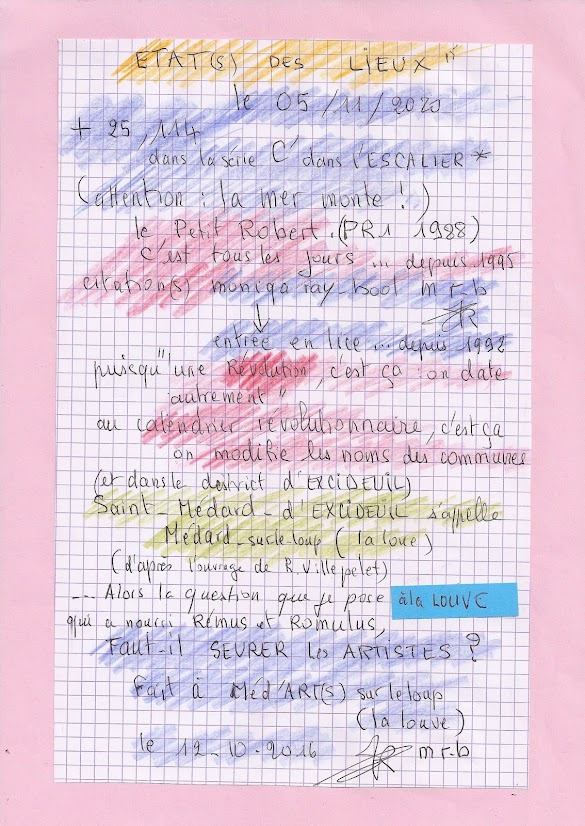 ETAT(S) DES LIEUX "
le 05/11/2020
+ 25,114
dans la série C' dans l'ESCALIER *
(attention : la mer monte !)
le Petit Robert. (PR1 1988)
c'est tous les jours ... depuis 1995
citation(s) moniqa ray-bool m r-b
entrée en lice ... depuis 1992
puisqu'"une Révolution, c'est ça : on date
autrement"
au calendrier révolutionnaire, c'est ça
on modifie les noms des communes
(et dans le district d'EXCIDEUIL)
Saint-Médard-d'EXCIDEUIL s'appelle
Médard-sur-le-loup (la loue)
(d'après l'ouvrage de R. Villepelet)
--- Alors la question que je pose à la LOUVE
qui a nourri Rémus et Romulus,
Faut-il SEVRER les ARTISTES ?
Fait à Méd'ART(S) sur le loup
(la louve)
le 12-10-2016 m r-b